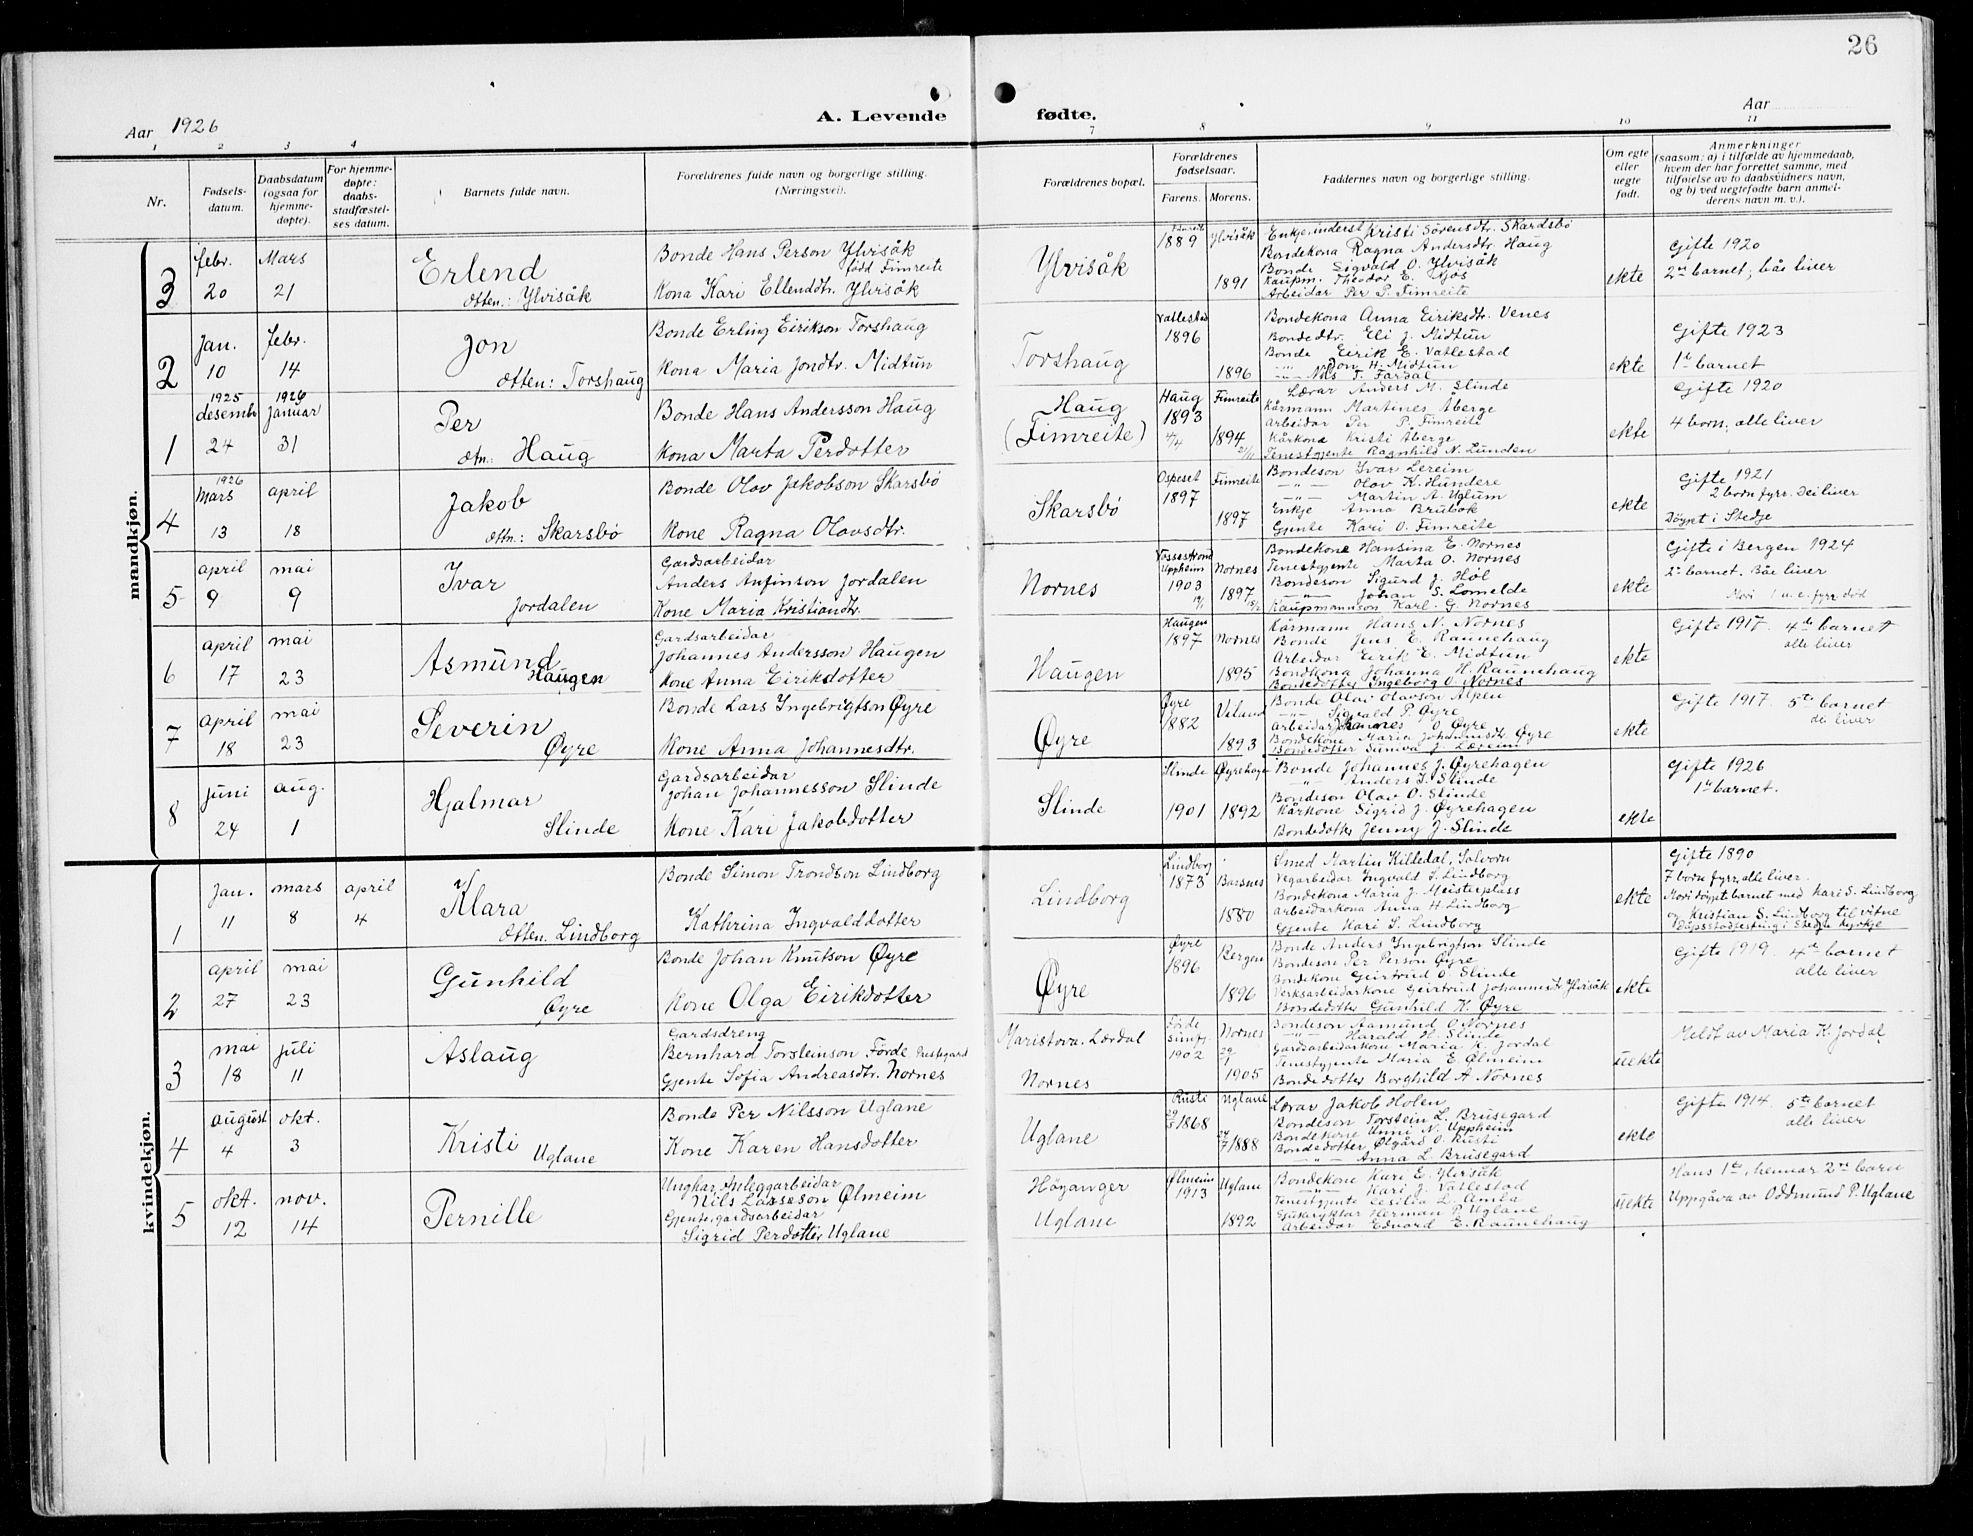 26
Aar 1926
A. Levende fødte.
Aar
1 2 3 4 7 8 9 10 11
Nr.
Fødsels-
datum.
Daabsdatum
(ogsaa for
hjemme-
døpte).
For hjemme-
døpte:
daabs-
stadfæstel-
ses datum.
Barnets fulde navn.
Forældrenes fulde navn og borgerlige stilling.
(Næringsvei).
Forældrenes bopæl.
Forældrenes
fødselsaar.
Farens. Morens.
Faddernes navn og borgerlige stilling.
Om egte
eller
uegte
født.
Anmerkninger
(saasom: a) i tilfælde av hjemmedaab,
hvem der har forrettet samme, med
tilføielse av to daabsvidners navn,
og b) ved uegtefødte barn anmel-
derens navn m. v.).
mandkjøn.
3
febr.
20
Mars
21
Erlend
Ætten.: Ylvisåk
Bonde Hans Person Ylvisåk
fødd Fimreite
Kona Kari Ellendtr. Ylvisåk
Ylvisåk
Fimreite
1889
Ylvisåk
1891
Enkje, inderst Kristi Sörensdtr. Skardsbø
Bondekona Ragna Andersdtr. Haug
Bonde Sigvald O. Ylvisåk
Kaupm. Theodor E. Kjos
Arbeidar Per P. Fimreite
ekte
Gifte 1920
2re barnet, båe liver
2
Jan.
10
febr.
14
Jon
Ætten: Torshaug
Bonde Erling Eirikson Torshaug
Kona Maria Jondtr. Midtun
Torshaug
Vatlestad
1896
1896
Bondekona Anna Eiriksdtr. Venes
Bondedtr. Eli J. Midtun
Bonde Eirik E. Vatlestad
-"- Jon H. Midtun
-"- Nils T. Fardal
ekte
Gifte 1923
1te barnet
1
1925
desembr
24
1926
januar
31
Per
Ætn: Haug
Bonde Hans Andersson Haug
Kona Marta Perdotter
Haug
(Fimreite)
Haug
1893
4/4
Fimreite
1894
21/11
Lærar Anders M. Slinde
Kårmann Martines Åberge
Arbeidar Per P. Fimreite
Kårkona Kristi Åberge
Tenestgjente Ragnhild N. Lunden
ekte
Gifte 1920
4 born, alle liver
4
1926
Mars
13
april
18
Jakob
Ættn.: Skarsbø
Bonde Olov Jakobson Skarsbø
Kone Ragna Olovsdtr.
Skarsbø
Ospeset
1897
Fimreite
1897
Bondeson Ivar Lereim
-"- Olov K. Hundere
-"- Martin A. Uglum
Enkje Anna Brubok
Gjente Kari O. Fimreite
ekte
Gifte 1921
2 born fyrr. Dei liver
Döypt i Stedje
5
april
9
mai
9
Ivar
Jordalen
Gardsarbeidar
Anders Anfinson Jordalen
Kone Maria Kristiandtr.
Nornes
Vossestrond
Uppheim
1903
19/1
Nornes
1897
15/2
Bondekone Hansina E. Nornes
Tenestgjente Marta O. Nornes
Bondeson Sigurd J. Høl
-"- Johan S. Lomelde
Kaupmannson Karl. G. Nornes
ekte
Gifte i Bergen 1924
2re barnet. Båe liver
Mori 1 u.e. fyrr, død
6
april
17
mai
23
Asmund
Haugen
Gardsarbeidar
Johannes Andersson Haugen
Kone Anna Eiriksdotter
Haugen
Haugen
1897
Nornes
1895
Kårmann Hans N. Nornes
Bonde Jens E. Raunehaug
Arbeidar Eirik E. Midtun
Bondkona Johanna H. Raunehaug
Bondedotter Ingeborg O. Nornes
ekte
Gifte 1917. 4de barnet
alle liver
7
april
18
mai
23
Severin
Øyre
Bonde Lars Ingebrigtson Øyre
Kone Anna Johannesdtr.
Øyre
Øyre
1882
1893
Bonde Olav Olavson Alpen
-"- Sigvald P. Øyre
Arbeidar Hannes O. Øyre
Bondekone Maria Johannesdtr. Øyre
Bondedotter Suniva J. Læreim
ekte
Gifte 1917. 5te barnet
dei liver
8
juni
24
aug.
1
Hjalmar
Slinde
Gardsarbeidar
Johan Johannesson Slinde
Kone Kari Jakobdotter
Slinde
Slinde
1901
Øyrehage
1892
Bonde Johannes J. Øyrehagen
-"- Anders I. Slinde
Bondeson Olav O. Slinde
Kårkone Sigrid J. Øyrehagen
Bondedotter Jenny J. Slinde
ekte
Gifte 1926
1te barnet.
kvindekjøn.
1
Jan.
11
mars
8
april
4
Klara
Ætten. Lindborg
Bonde Simon Trondson Lindborg
Kathrina Ingvalddotter
Lindborg
Lindborg
1873
Barsnes
1880
Smed Martin Killedal, Solvorn
Vegarbeidar Ingvald S. Lindborg
Bondekona Maria J. Meisterplass
Arbeidarkona Anna H Lindborg
Gjente Kari S. Lindborg
ekte
Gifte 1890
7 born fyrr, alle liver.
Mori döypt barnet med Kari S. Lindborg
og Kristian S. Lindborg til vitne
Dåpsstadfesting i Stedje kyrkje
2
april
27
mai
23
Gunhild
Øyre
Bonde Johan Knutson Øyre
Kone Olga Eirikdotter
Øyre
Øyre
1896
Bergen
1896
Bonde Anders Ingebrigtson Slinde
Bondeson Per Person Øyre
Bondekone Geirtrud O. Slinde
Verksarbeidarkone Geirtrud Johannesdtr Ylvisåk
Bondedotter Gunhild K. Øyre
ekte
Gifte 1919. 4de barnet
alle liver
3
mai
18
juli
11
Aslaug
Gardsdreng
Bernhard Torsteinson Förde
Gjente Sofia Andreasdtr. Nornes
Maristova. Lærdal
Nornes
Förde
1902
Nornes
1905
Bondeson Asmund O. Nornes
-"- Harald H. Slinde
Gardsarbeidarkone Maria K. Jordal
Tenestgjente Maria E. Ølmeim
Bondedotter Borghild A. Nornes
uekte
Meldt av Maria K. Jordal
4
august
4
okt.
3
Kristi
Uglane
Bonde Per Nilsson Uglane
Kone Karen Hansdotter
Uglane
Rusti
1868
Uglane
1888
Lærar Jakob Holen
Bondeson Torstein L. Brusegard
Bondekone Anni N. Uppheim
Bondedotter Ølgård O. Rusti
-"- Anna L. Brusegard
ekte
Gifte 1914. 5te barnet
alle liver
5
okt.
12
nov.
14
Pernille
Ungkar, Anleggarbeidar
Nils Lasseson Ølmeim
Gjente, gardsarbeidar
Sigrid Perdotter Uglane
Höyanger
Uglane
Ølmeim
1913
Uglane
1892
Bondekone Kari E. Ylvisåk
-"- Kari J. Vatlestad
Tenestgjente Cesilia L. Amla
Sjukryktar Herman P. Uglane
Arbeidar Edvard E. Raunehaug
uekte
Hans 1te, hennar 2re barn
Uppgåva av Oddmund P. Uglane